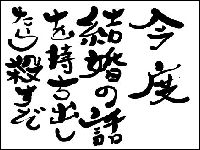 今度
結婚の話
を持ち出し
たら殺すぞ